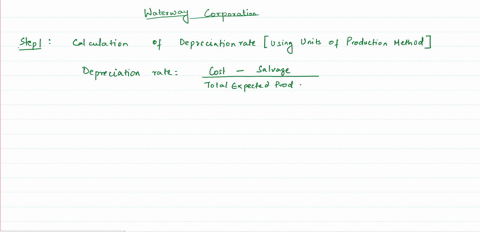 Waterway Corporation
Step1: Calculation of Depreciation rate [Using Units of Production Method]
Depreciation rate: Cost - Salvage
Total Expected Prod.